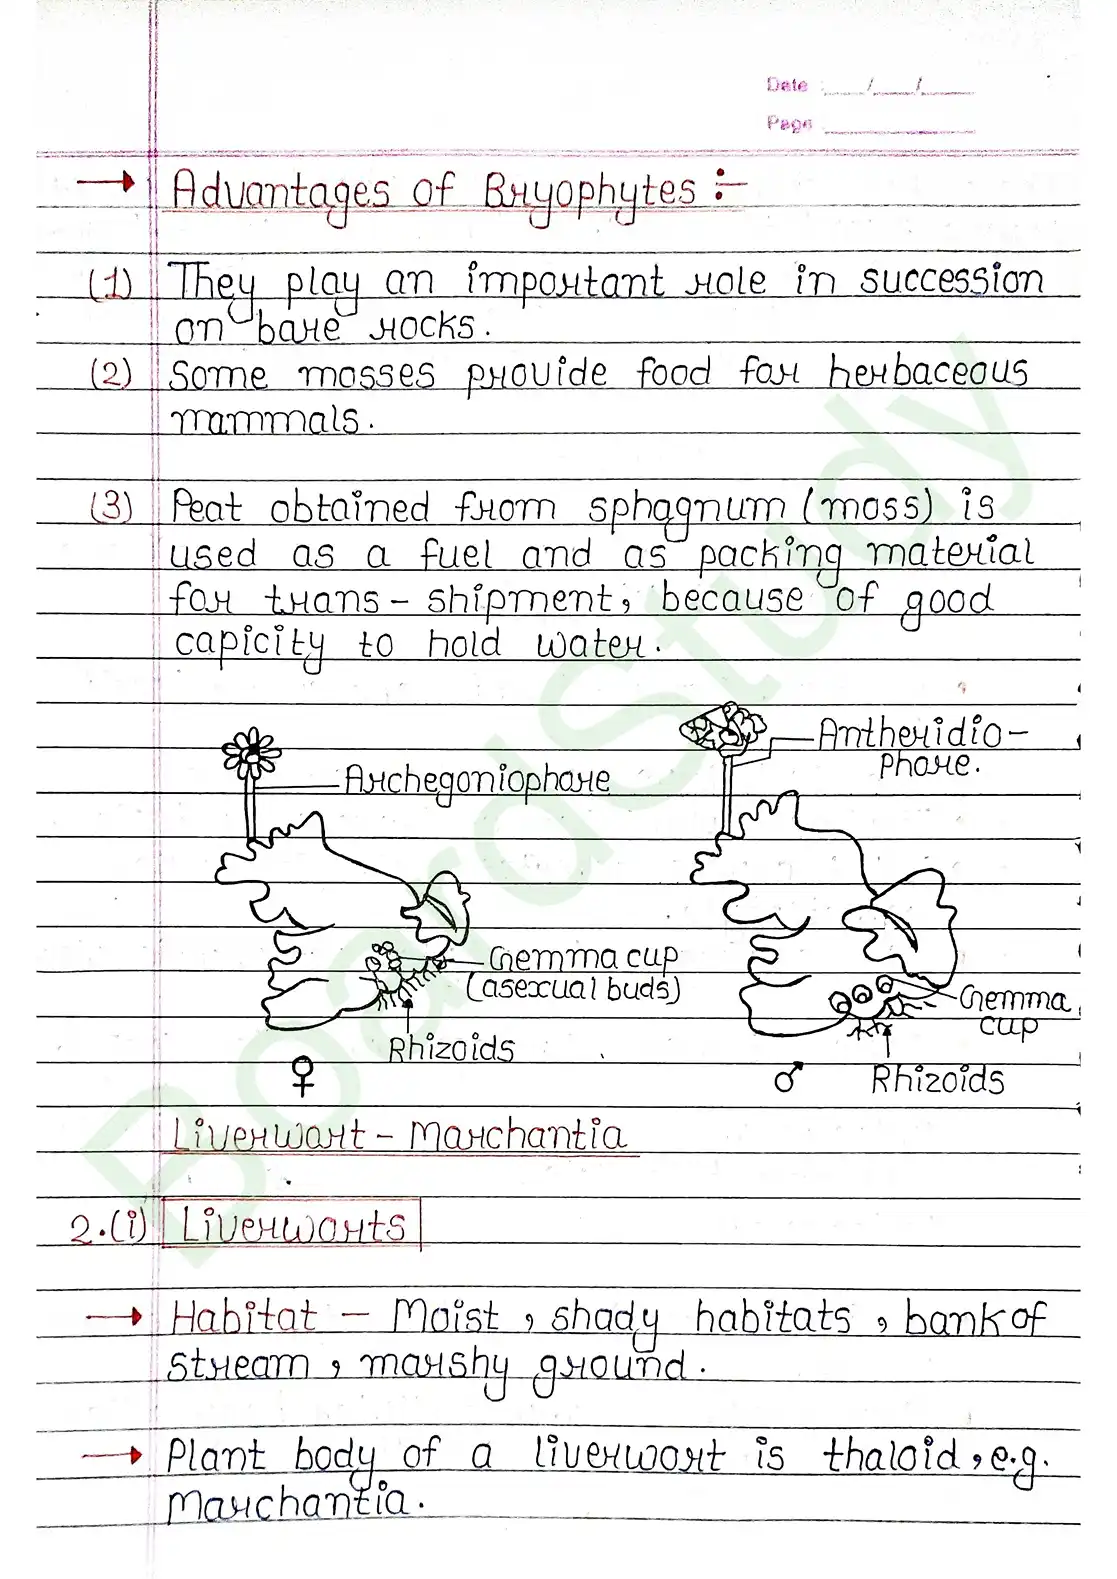 Date : ___/___/___
Page ___
→ Advantages of Bryophytes :-
(1) They play an important role in succession
on bare rocks.
(2) Some mosses provide food for herbaceous
mammals.
(3) Peat obtained from sphagnum (moss) is
used as a fuel and as packing material
for trans - shipment, because of good
capicity to hold water.
Archegoniophore
Antheridio-
phore.
Gemma cup
(asexual buds)
Rhizoids
♀
Gemma
cup
Rhizoids
♂
Liverwort - Marchantia
2.(i) Liverworts
→ Habitat - Moist, shady habitats, bank of
stream, marshy ground.
→ Plant body of a liverwort is thaloid, e.g.
Marchantia.
BoardStudy